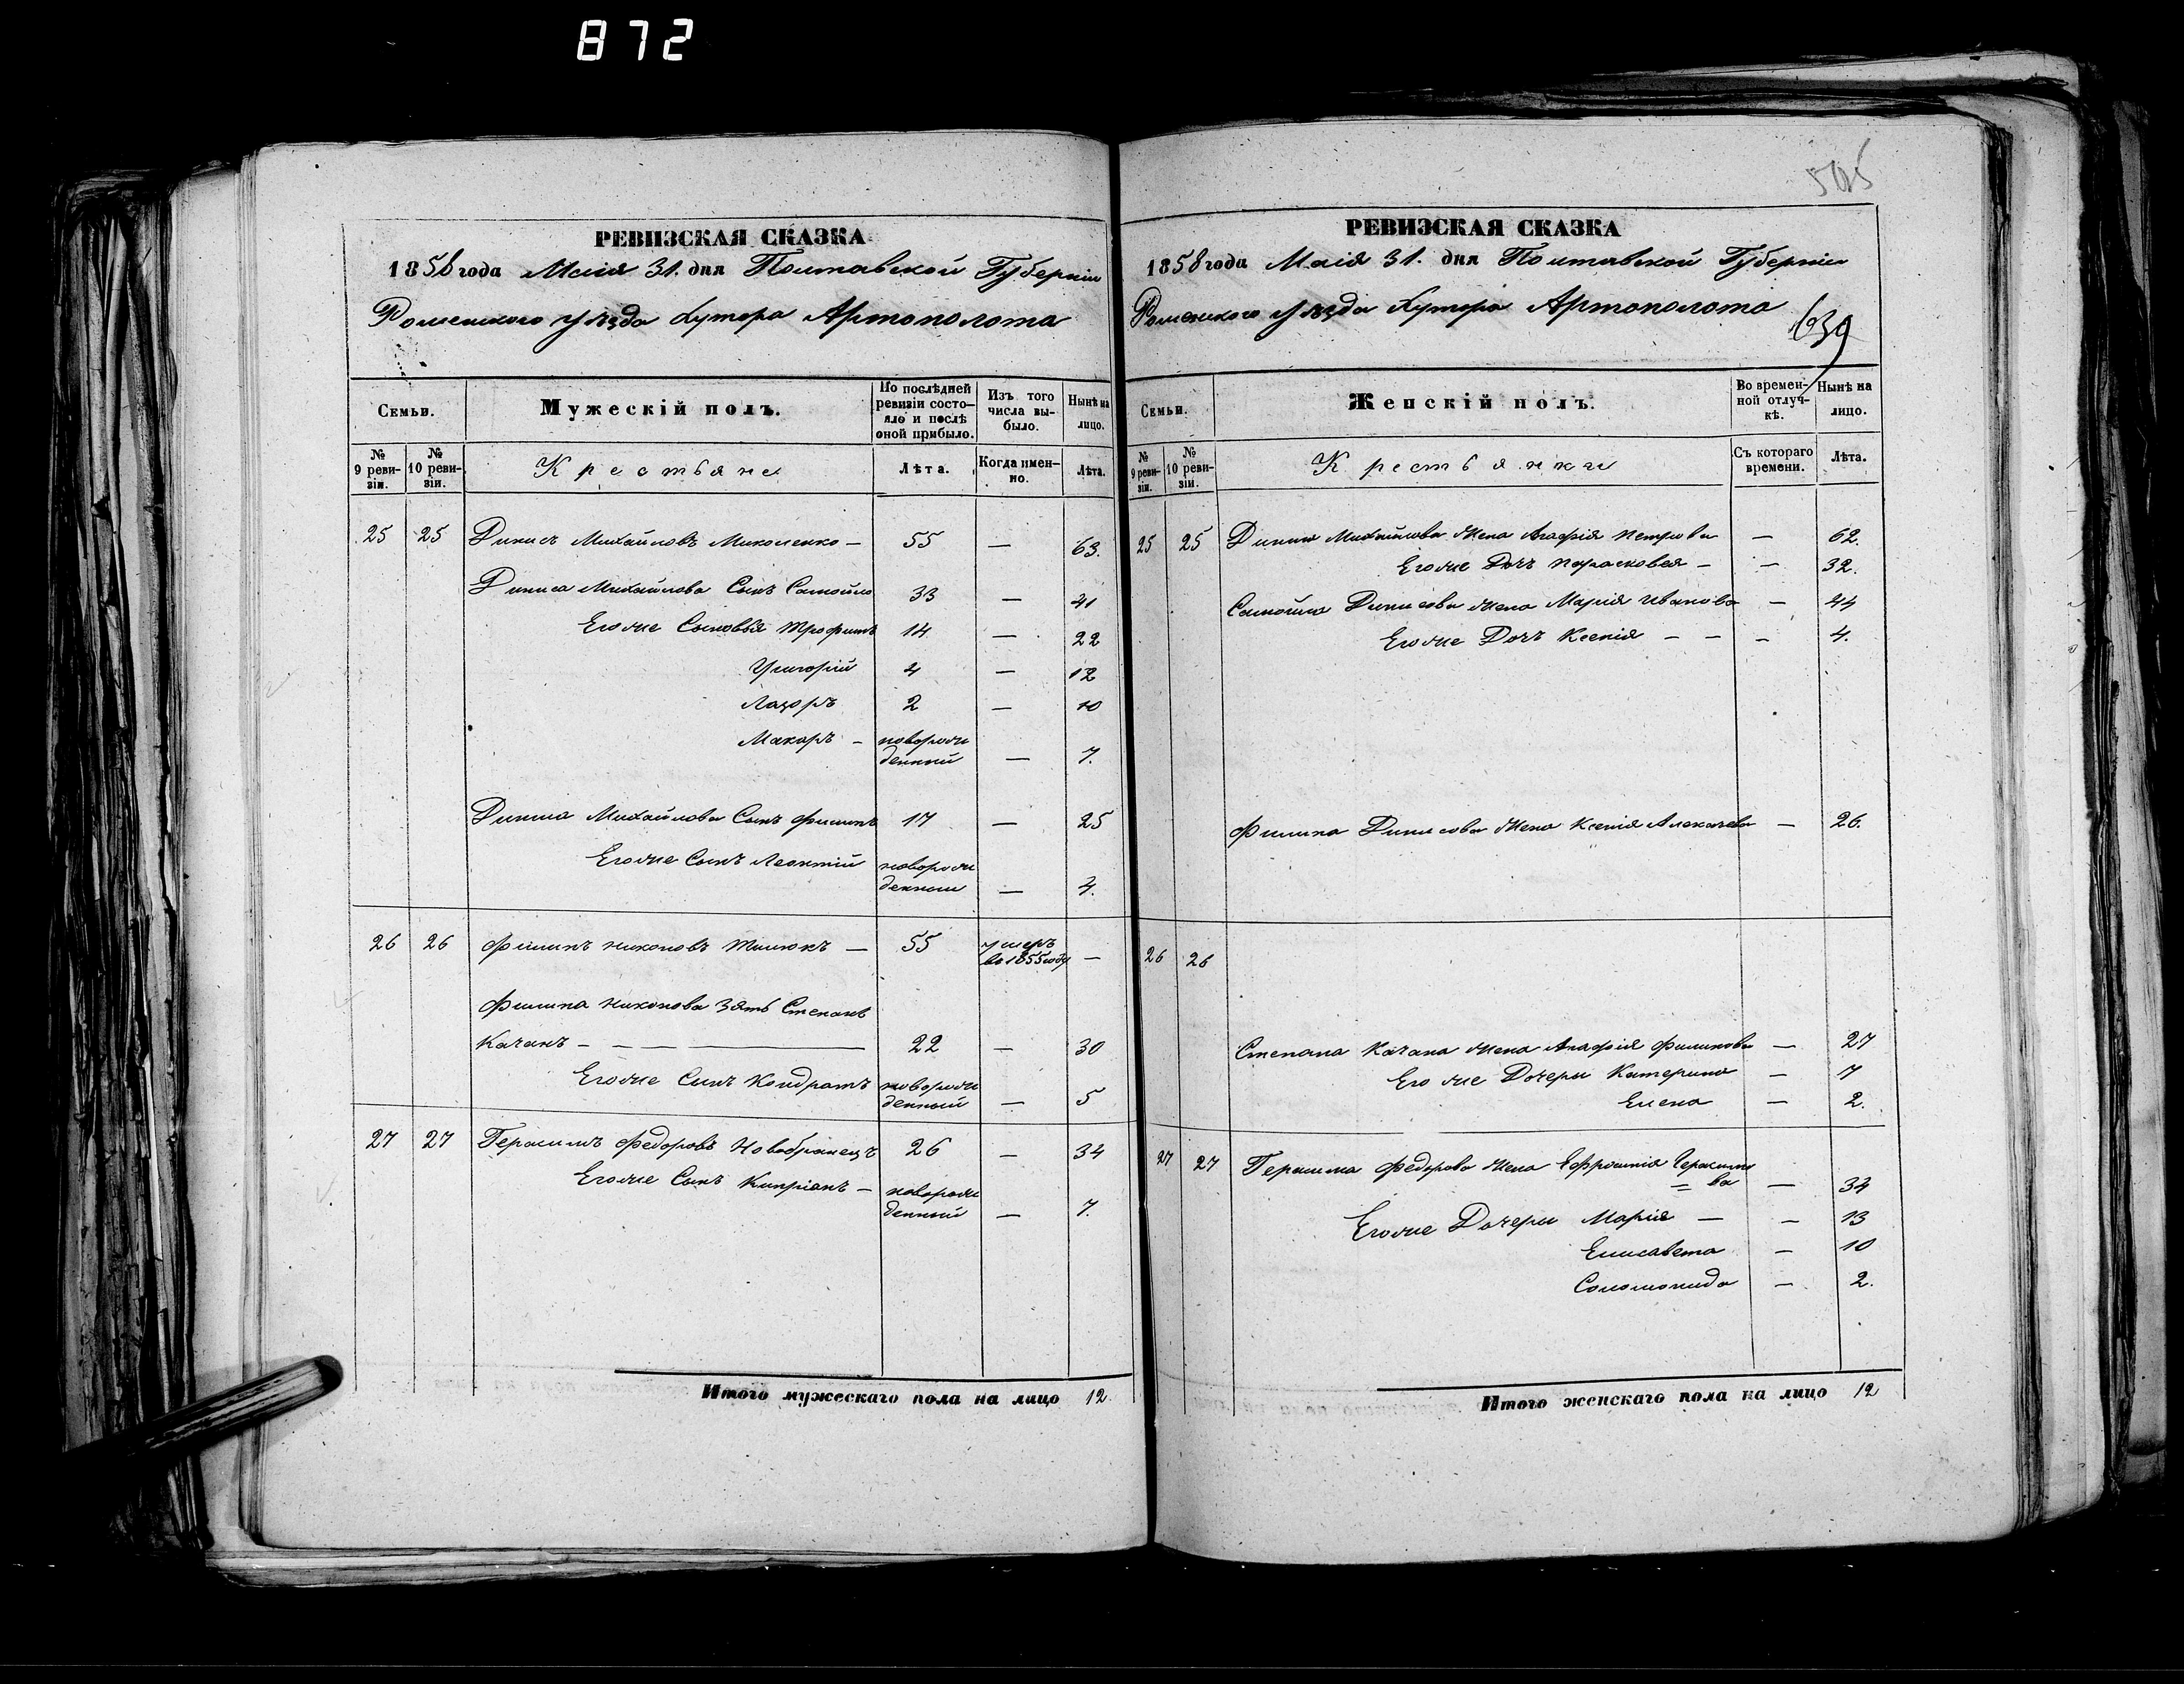 872
РЕВИЗСКАЯ СКАЗКА
1858 года Маія 31. дня Полтавской Губерніи
Роменского Уѣзда Хутора Артополота
Семьи.
Мужескій полъ.
По послѣдней ревизіи состояло и послѣ оной прибыло.
Изъ того числа выбыло.
Нынѣ на лицо.
№ 9 ревизіи.
№ 10 ревизіи.
Крестьяне
Лѣта.
Когда именно.
Лѣта.
25 25 Динисъ Михайловъ Миколенко — 55 — 63.
Диниса Михайлова Сынъ Самойло 33 — 41
Его же Сыновья Трофимъ 14 — 22
Григорій 4 — 12
Лазоръ 2 — 10
Макаръ — новорож
денный — 7.
Диниса Михайлова Сынъ Филипъ 17 — 25
Его же Сынъ Леонтій новорож
денный — 4.
26 26 Филипъ Никоновъ — 55 умеръ
въ 1855 году —
Филипа Никонова Зять Степанъ
Качанъ — — — 22 — 30
Его же Сынъ Кондратъ новорож
денный — 5
27 27 Герасимъ Федоровъ Новобранецъ 26 — 34
Его же Сынъ Кипріянъ — новорож
денный — 7.
Итого мужескаго пола на лицо 12.
639
РЕВИЗСКАЯ СКАЗКА
1858 года Маія 31. дня Полтавской Губерніи
Роменского Уѣзда Хутора Артополота
Семьи.
Женскій полъ.
Во временной отлучкѣ.
Нынѣ на лицо.
№ 9 ревизіи.
№ 10 ревизіи.
Крестьянки
Съ котораго времени.
Лѣта.
25 25 Диниса Михайлова Жена Агафія Петрова — 62.
Его же Дочь Парасковея — — 32.
Самойла Динисова Жена Марія Иванова — 44
Его же Дочь Ксенія — — — 4.
Филипа Динисова Жена Ксенія Алексѣева — 26.
26 26
Степана Качана Жена Агафія Филипова — 27
Его же Дочери Катерина — 7
Елена — 2.
27 27 Герасима Федорова Жена Ефросинія Герасимо
= ва — 34
Его же Дочери Марія — — 13
Елисавета — 10
Соломонида — 2.
Итого женскаго пола на лицо 12